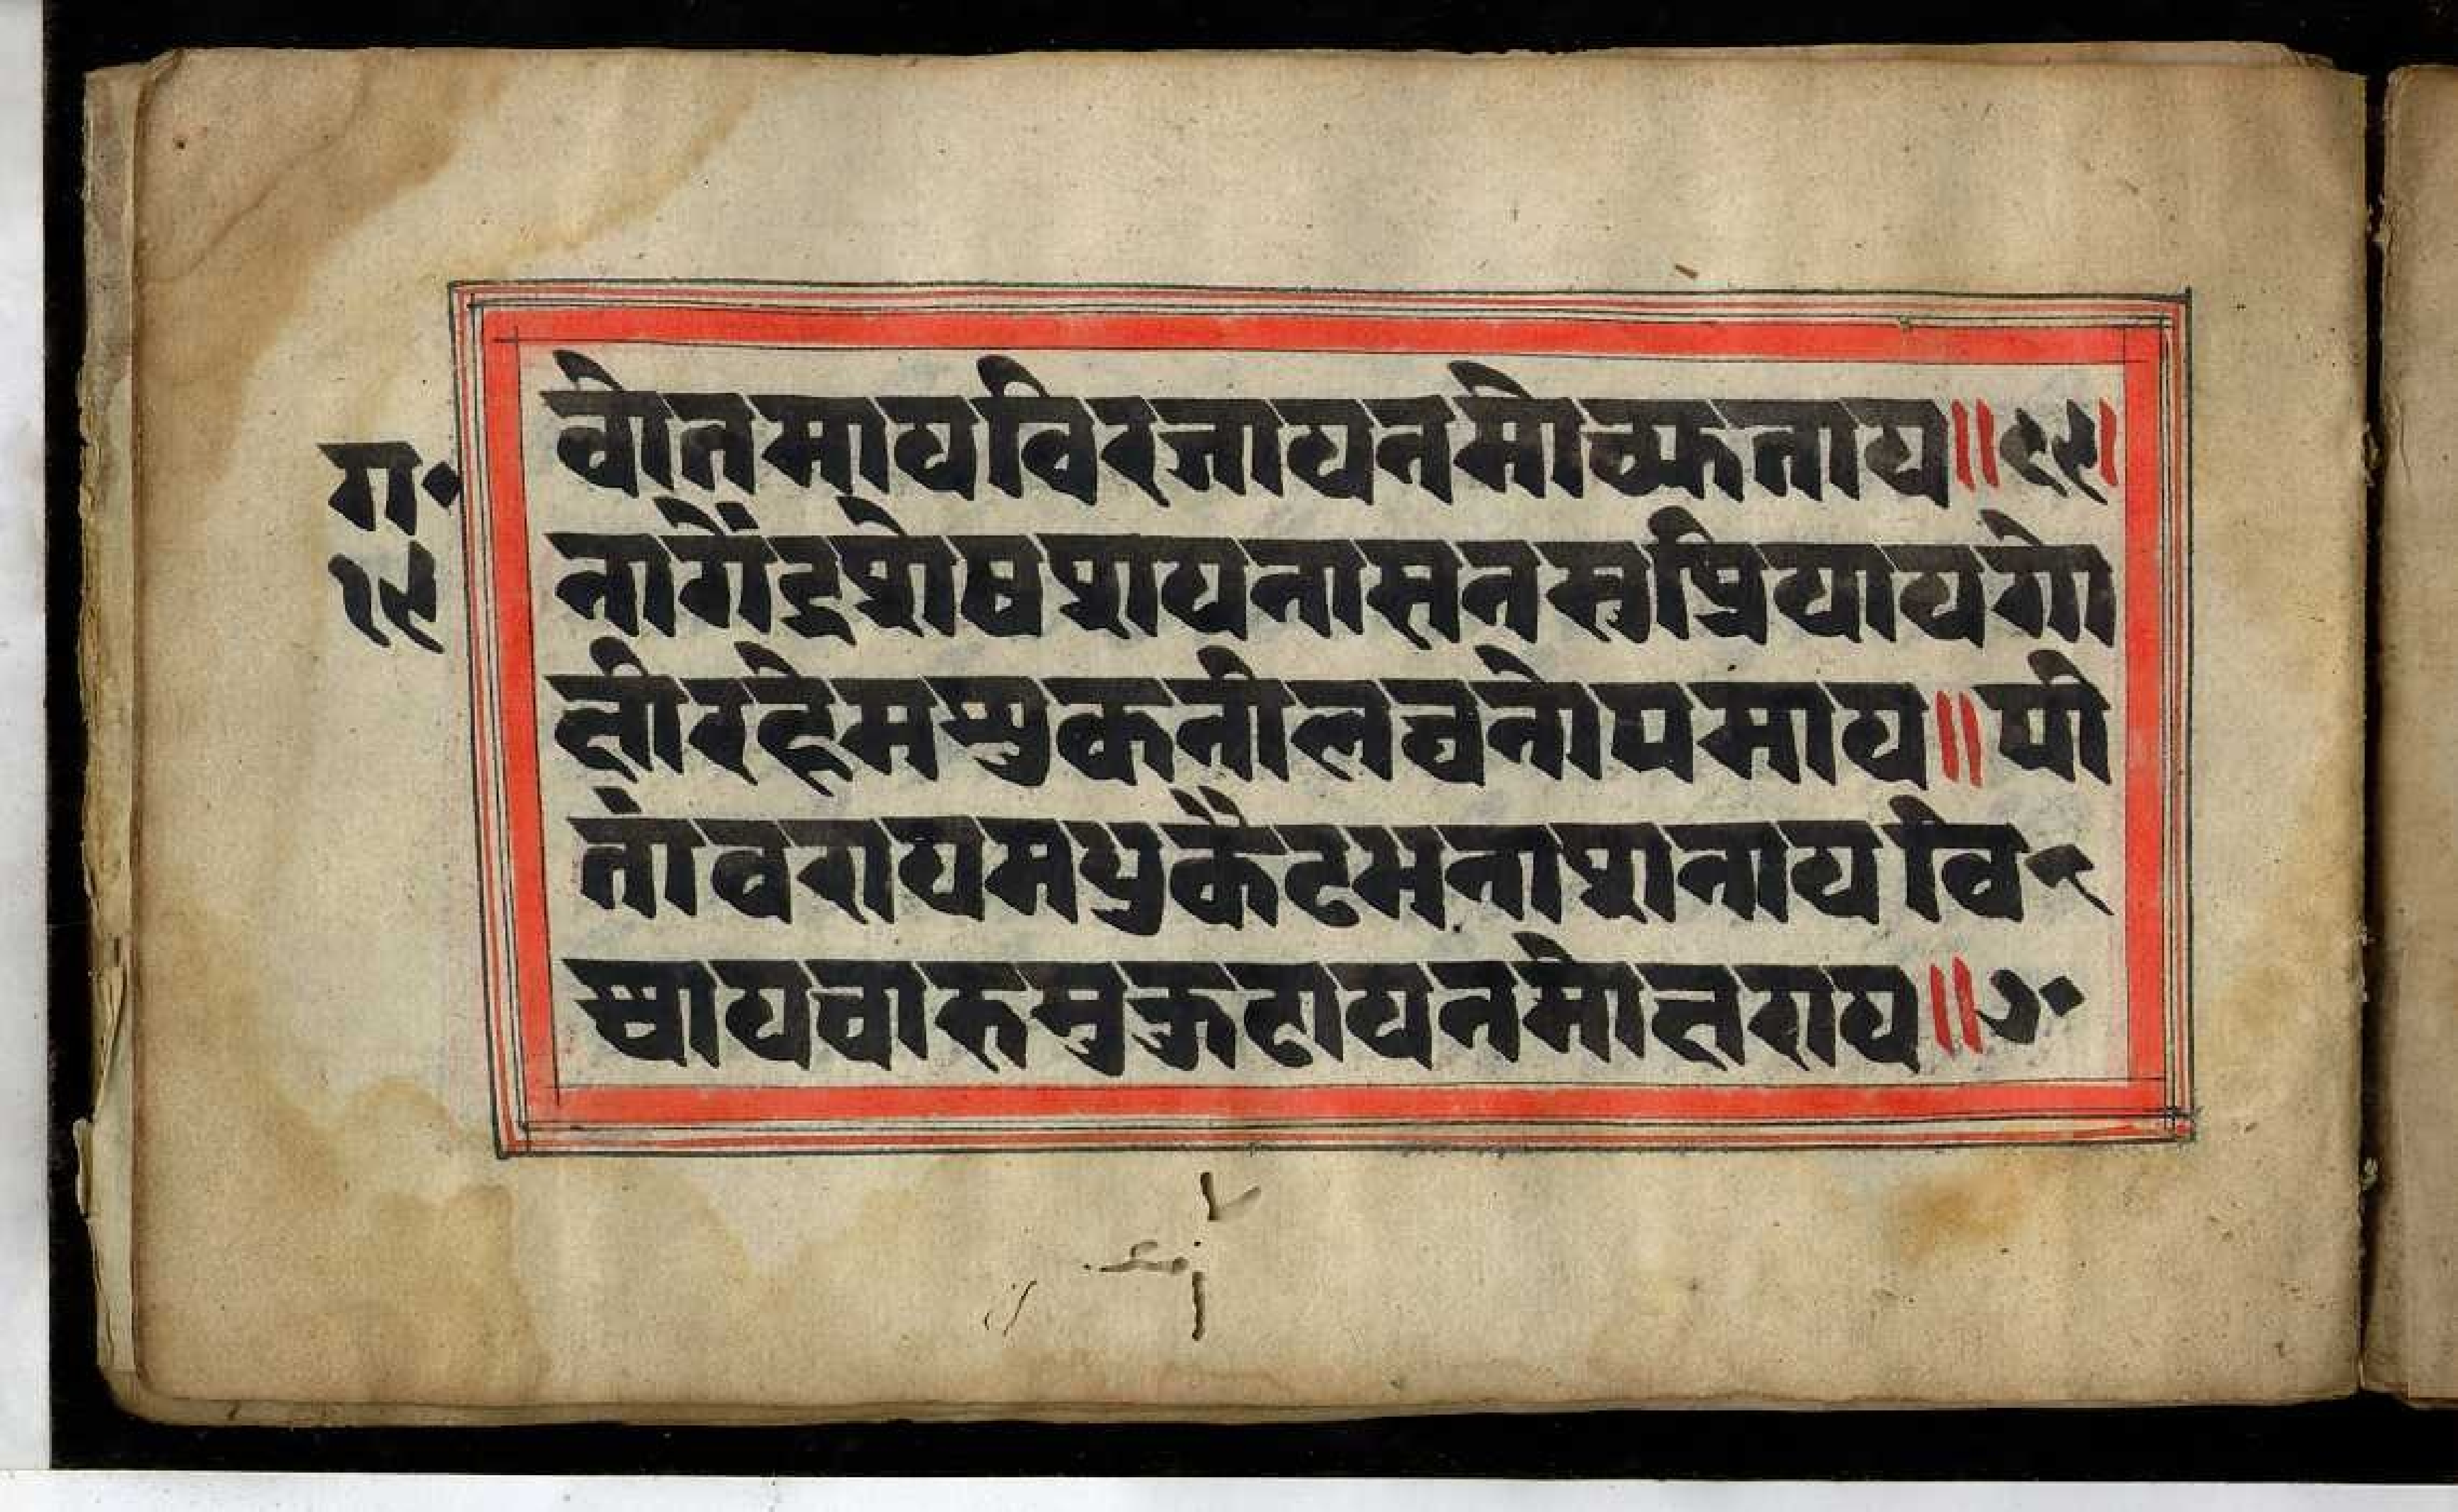 ग॰
१९
वोतमायविरजायनमो॥१९॥
नागेंद्रशेषशायनासनसुप्रियायगो
क्षीरहेमशुकनीलघनोपमाय॥पी
तांवरायमधुकैटभनाशनायवि-
श्वायचारुमुकुटायनमोक्षराय॥२०